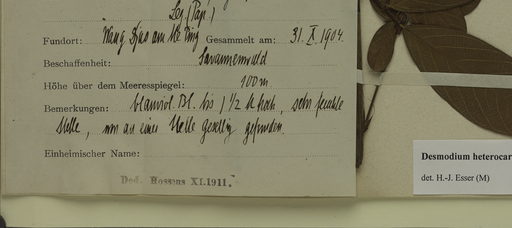 Leg. (Pap.)
Fundort: Wang Djao am Me Ping Gesammelt am: 31. X. 1904.
Beschaffenheit: Savannenwald
Höhe über dem Meeresspiegel: 100 m
Bemerkungen: blauviol. Bl. bis 1 1/2 m hoch, sehr feuchte
Stelle, nur an einer Stelle gesellig gefunden.
Einheimischer Name:
Ded. Hosseus XI.1911.
Desmodium heterocar
det. H.-J. Esser (M)